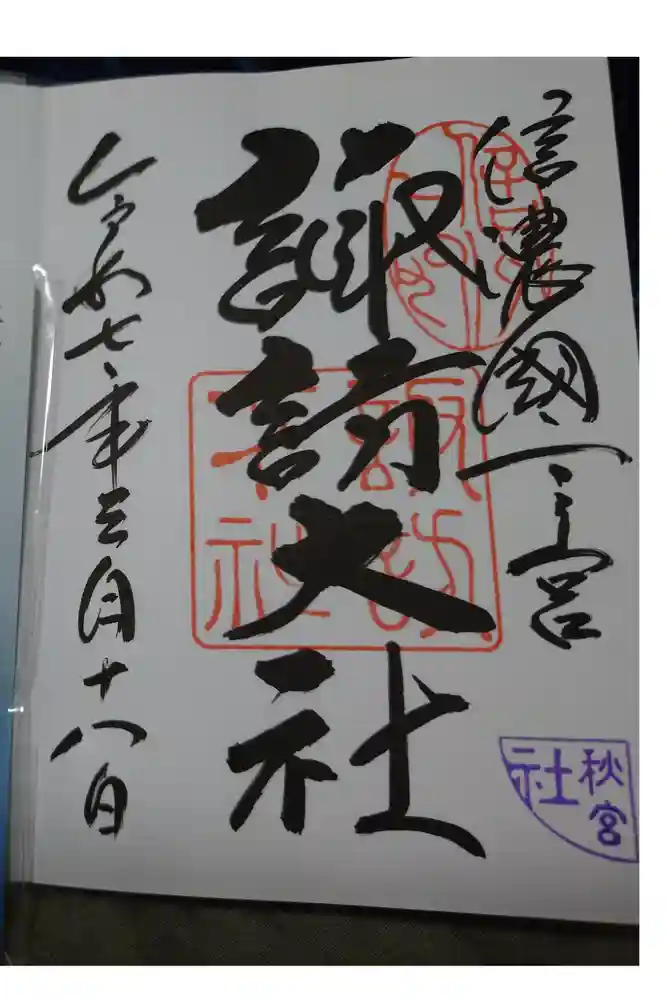 信濃國一之宮
諏訪大社
令和七年三月十八日
秋宮
社